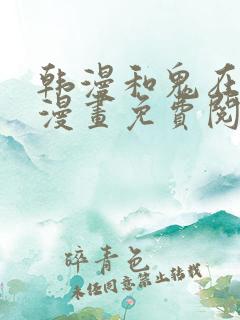 韩漫和鬼在
漫畫免費閱
碎青色
未经同意禁止转载